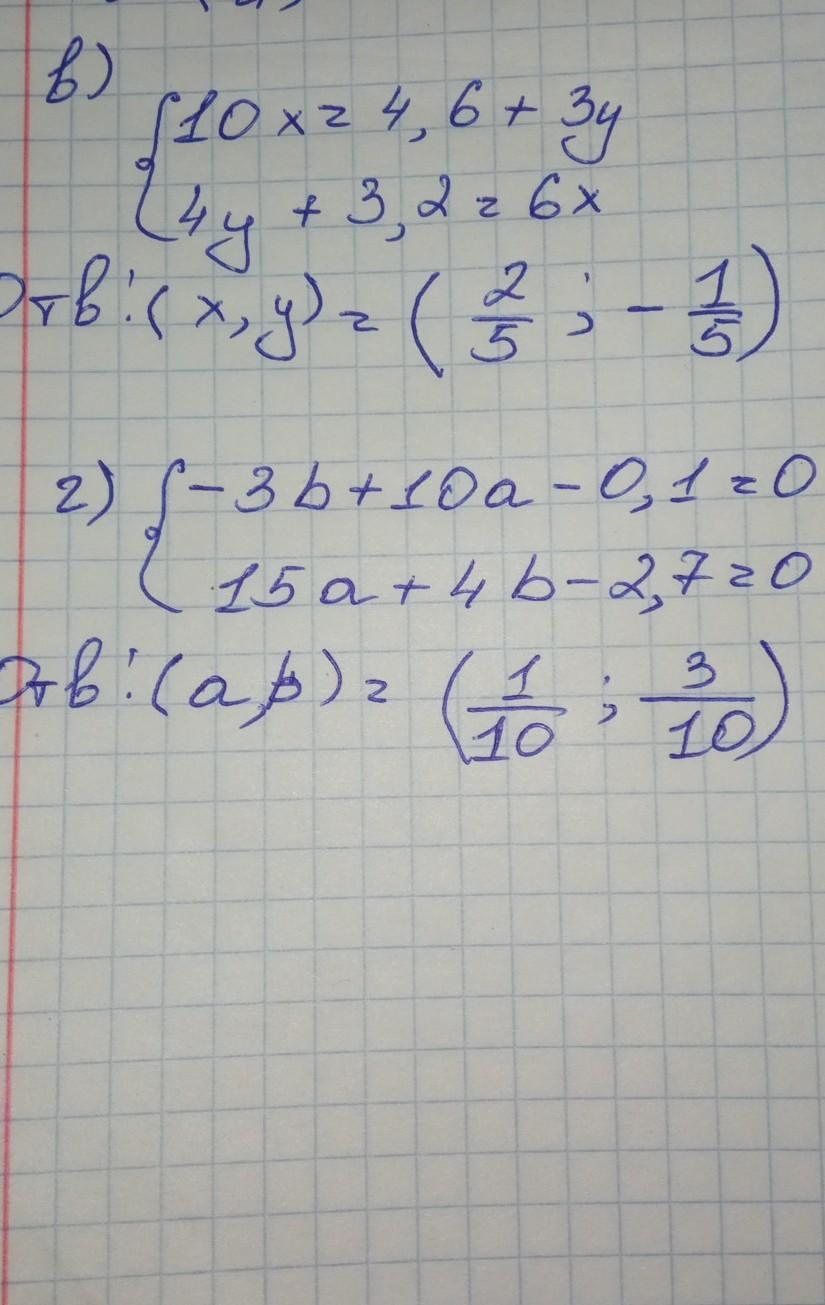 в)
{10x = 4,6 + 3y
4y + 3,2 = 6x
Отв: (x, y) = (2/5 ; - 1/5)
г) {-3b + 10a - 0,1 = 0
15a + 4b - 2,7 = 0
Отв: (a, b) = (1/10 ; 3/10)